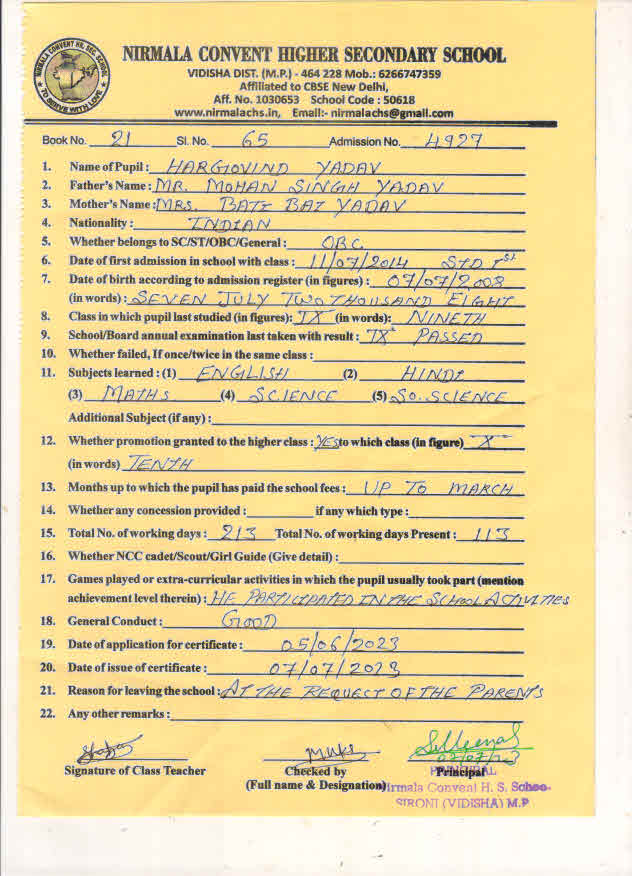 NIRMALA CONVENT HR. SEC. SCHOOL
TO SERVE WITH LOVE
NIRMALA CONVENT HIGHER SECONDARY SCHOOL
VIDISHA DIST. (M.P.) - 464 228 Mob.: 6266747359
Affiliated to CBSE New Delhi,
Aff. No. 1030653 School Code : 50618
www.nirmalachs.in, Email:- nirmalachs@gmail.com
Book No. 21 Sl. No. 65 Admission No. 4927
1. Name of Pupil : HARGOVIND YADAV
2. Father's Name : MR. MOHAN SINGH YADAV
3. Mother's Name : MRS. BATI BAI YADAV
4. Nationality : INDIAN
5. Whether belongs to SC/ST/OBC/General : OBC
6. Date of first admission in school with class : 11/07/2014 STD Ist
7. Date of birth according to admission register (in figures) : 07/07/2008
(in words) : SEVEN JULY TWO THOUSAND EIGHT
8. Class in which pupil last studied (in figures): IX (in words): NINETH
9. School/Board annual examination last taken with result : IX PASSED
10. Whether failed, If once/twice in the same class :
11. Subjects learned : (1) ENGLISH (2) HINDI
(3) MATHS (4) SCIENCE (5) SO. SCIENCE
Additional Subject (if any) :
12. Whether promotion granted to the higher class : YES to which class (in figure) X
(in words) TENTH
13. Months up to which the pupil has paid the school fees : UP TO MARCH
14. Whether any concession provided : if any which type :
15. Total No. of working days : 213 Total No. of working days Present : 113
16. Whether NCC cadet/Scout/Girl Guide (Give detail) :
17. Games played or extra-curricular activities in which the pupil usually took part (mention
achievement level therein) : HE PARTICIPATED IN THE SCHOOL ACTIVITIES
18. General Conduct : GOOD
19. Date of application for certificate : 05/06/2023
20. Date of issue of certificate : 07/07/2023
21. Reason for leaving the school : AT THE REQUEST OF THE PARENTS
22. Any other remarks :
07/07/23
Signature of Class Teacher Checked by Principal
PRINCIPAL
(Full name & Designation)
Nirmala Convent H. S. School
SIRONJ (VIDISHA) M.P